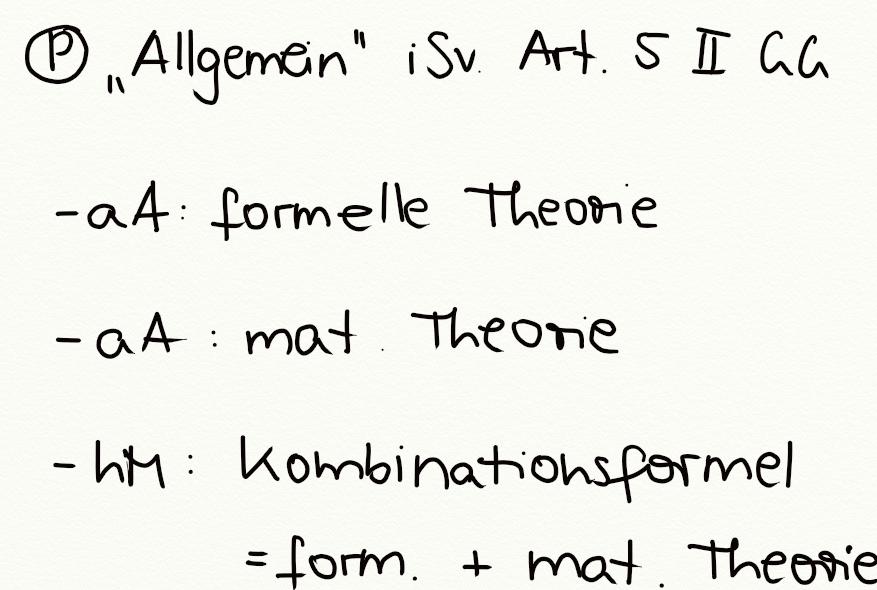 Ⓟ „Allgemein" iSv. Art. 5 II GG
- aA: formelle Theorie
- aA: mat. Theorie
- hM: Kombinationsformel
= form. + mat. Theorie